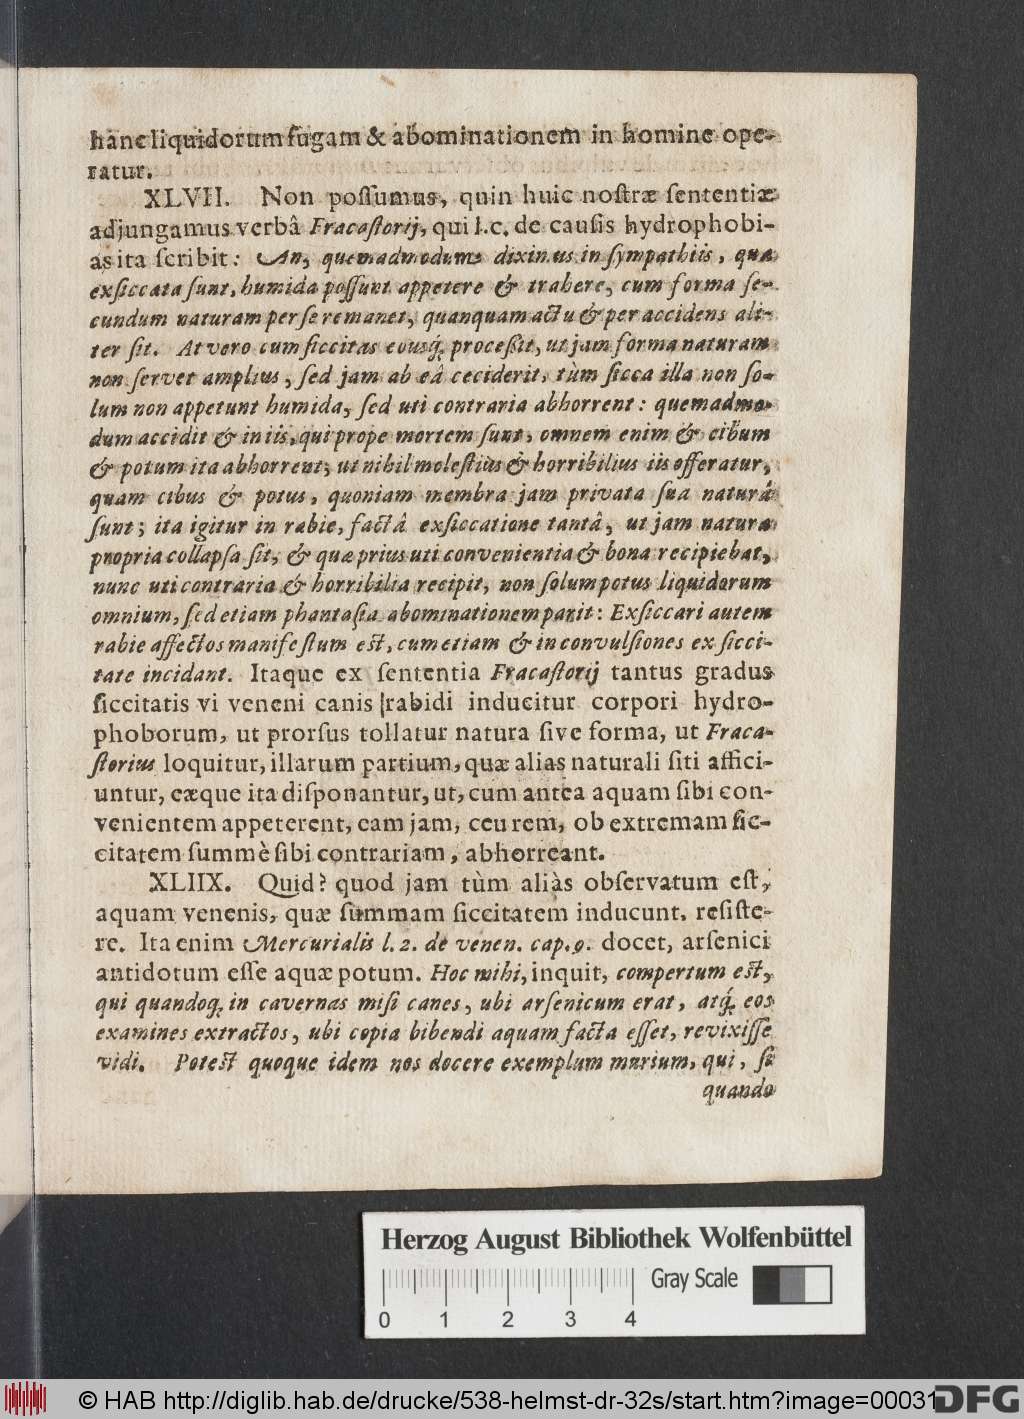 hanc liquidorum fugam & abominationem in homine ope-
ratur.
XLVII. Non poſſumus, quin huic noſtræ ſententiæ
adjungamus verbâ Fracaſtorij, qui l.c. de cauſis hydrophobi-
as ita ſcribit: An, quemadmodum diximus in ſympathiis, quæ
exſiccata ſunt, humida poſſunt appetere & trahere, cum forma ſe-
cundum naturam per ſe remanet, quanquam actu & per accidens ali-
ter ſit. At vero cum ſiccitas eousq́; proceßit, ut jam forma naturam
non ſervet amplius, ſed jam ab eâ ceciderit, tùm ſicca illa non ſo-
lum non appetunt humida, ſed uti contraria abhorrent: quemadmo-
dum accidit & in iis, qui prope mortem ſunt, omnem enim & cibum
& potum ita abhorrent, ut nihil moleſtius & horribilius iis offeratur,
quam cibus & potus, quoniam membra jam privata ſua naturâ
ſunt; ita igitur in rabie, factâ exſiccatione tantâ, ut jam natura
propria collapſa ſit, & quæ prius uti convenientia & bona recipiebat,
nunc uti contraria & horribilia recipit, non ſolum potus liquidorum
omnium, ſed etiam phantaſia abominationem parit: Exſiccari autem
rabie affectos manifeſtum eſt, cum etiam & in convulſiones ex ſicci-
tate incidant. Itaque ex ſententia Fracaſtorij tantus gradus
ſiccitatis vi veneni canis rabidi inducitur corpori hydro-
phoborum, ut prorſus tollatur natura ſive forma, ut Fraca-
ſtorius loquitur, illarum partium, quæ alias naturali ſiti affici-
untur, eæque ita diſponantur, ut, cum antea aquam ſibi con-
venientem appeterent, eam jam, ceu rem, ob extremam ſic-
citatem ſummè ſibi contrariam, abhorreant.
XLIIX. Quid? quod jam tùm aliàs obſervatum eſt,
aquam venenis, quæ ſummam ſiccitatem inducunt, reſiſte-
re. Ita enim Mercurialis l. 2. de venen. cap. 9. docet, arſenici
antidotum eſſe aquæ potum. Hoc mihi, inquit, compertum eſt,
qui quandoq; in cavernas miſi canes, ubi arſenicum erat, atq́; eos
examines extractos, ubi copia bibendi aquam facta eſſet, revixiſſe
vidi. Poteſt quoque idem nos docere exemplum murium, qui, ſi
quando
Herzog August Bibliothek Wolfenbüttel
Gray Scale
0 1 2 3 4
© HAB http://diglib.hab.de/drucke/538-helmst-dr-32s/start.htm?image=00031
DFG